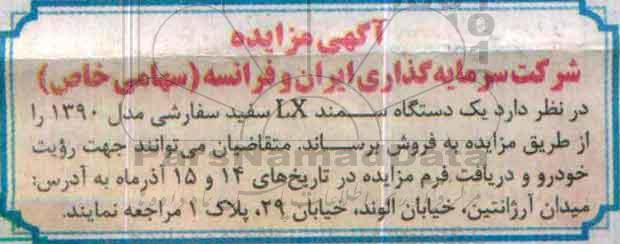 آگهی مزایده
شرکت سرمایه گذاری ایران و فرانسه (سهامی خاص)
در نظر دارد یک دستگاه سمند LX سفید سفارشی مدل ۱۳۹۰ را
از طریق مزایده به فروش برساند. متقاضیان می‌توانند جهت رؤیت
خودرو و دریافت فرم مزایده در تاریخ‌های ۱۴ و ۱۵ آذرماه به آدرس:
میدان آرژانتین، خیابان الوند، خیابان ۲۹، پلاک ۱ مراجعه نمایند.
ParsNamadData